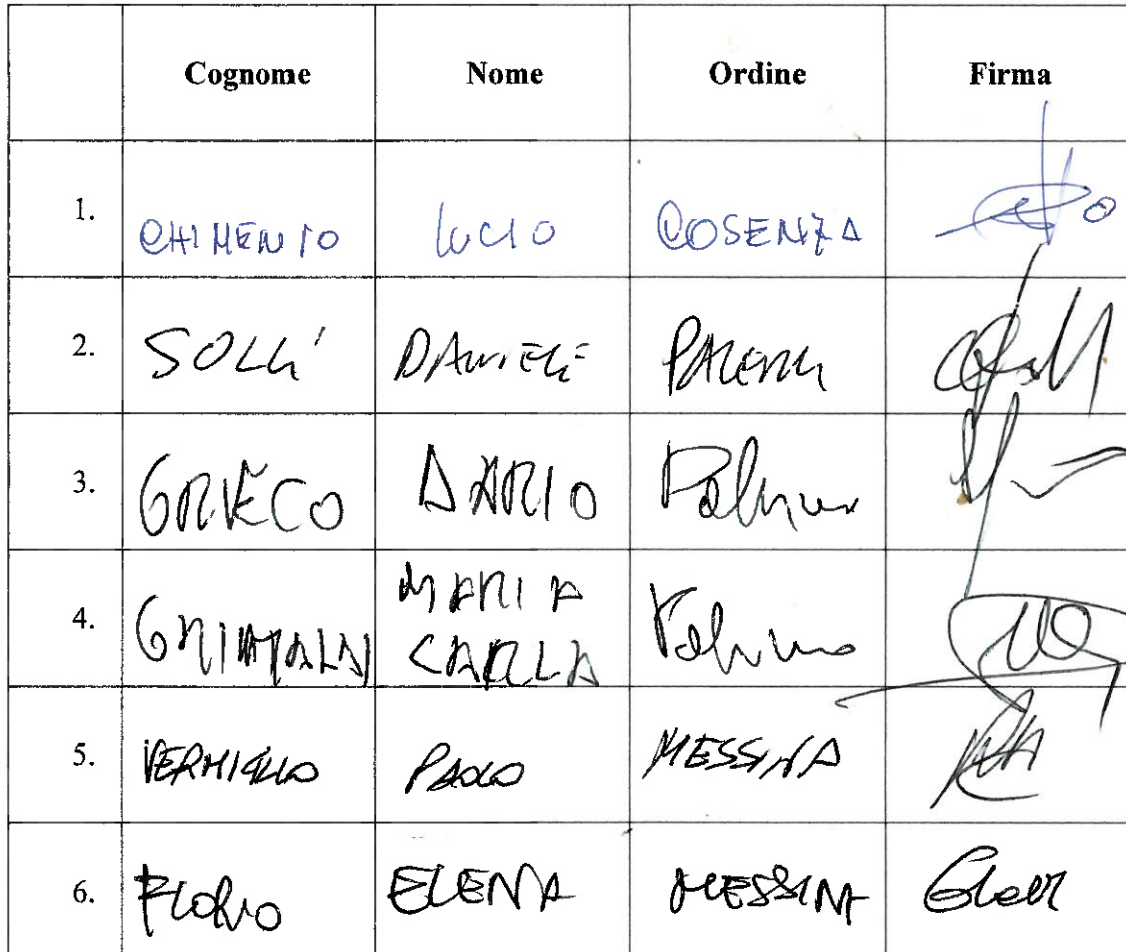 Cognome Nome Ordine Firma
1. CHIMENTO LUCIO COSENZA
2. SOLLI' DANIELE
3. GRECO DARIO Palermo
4. GRIMALDI MARIA CARLA Palermo
5. VERMIGLIO PAOLO MESSINA
6. FLORIO ELENA MESSINA